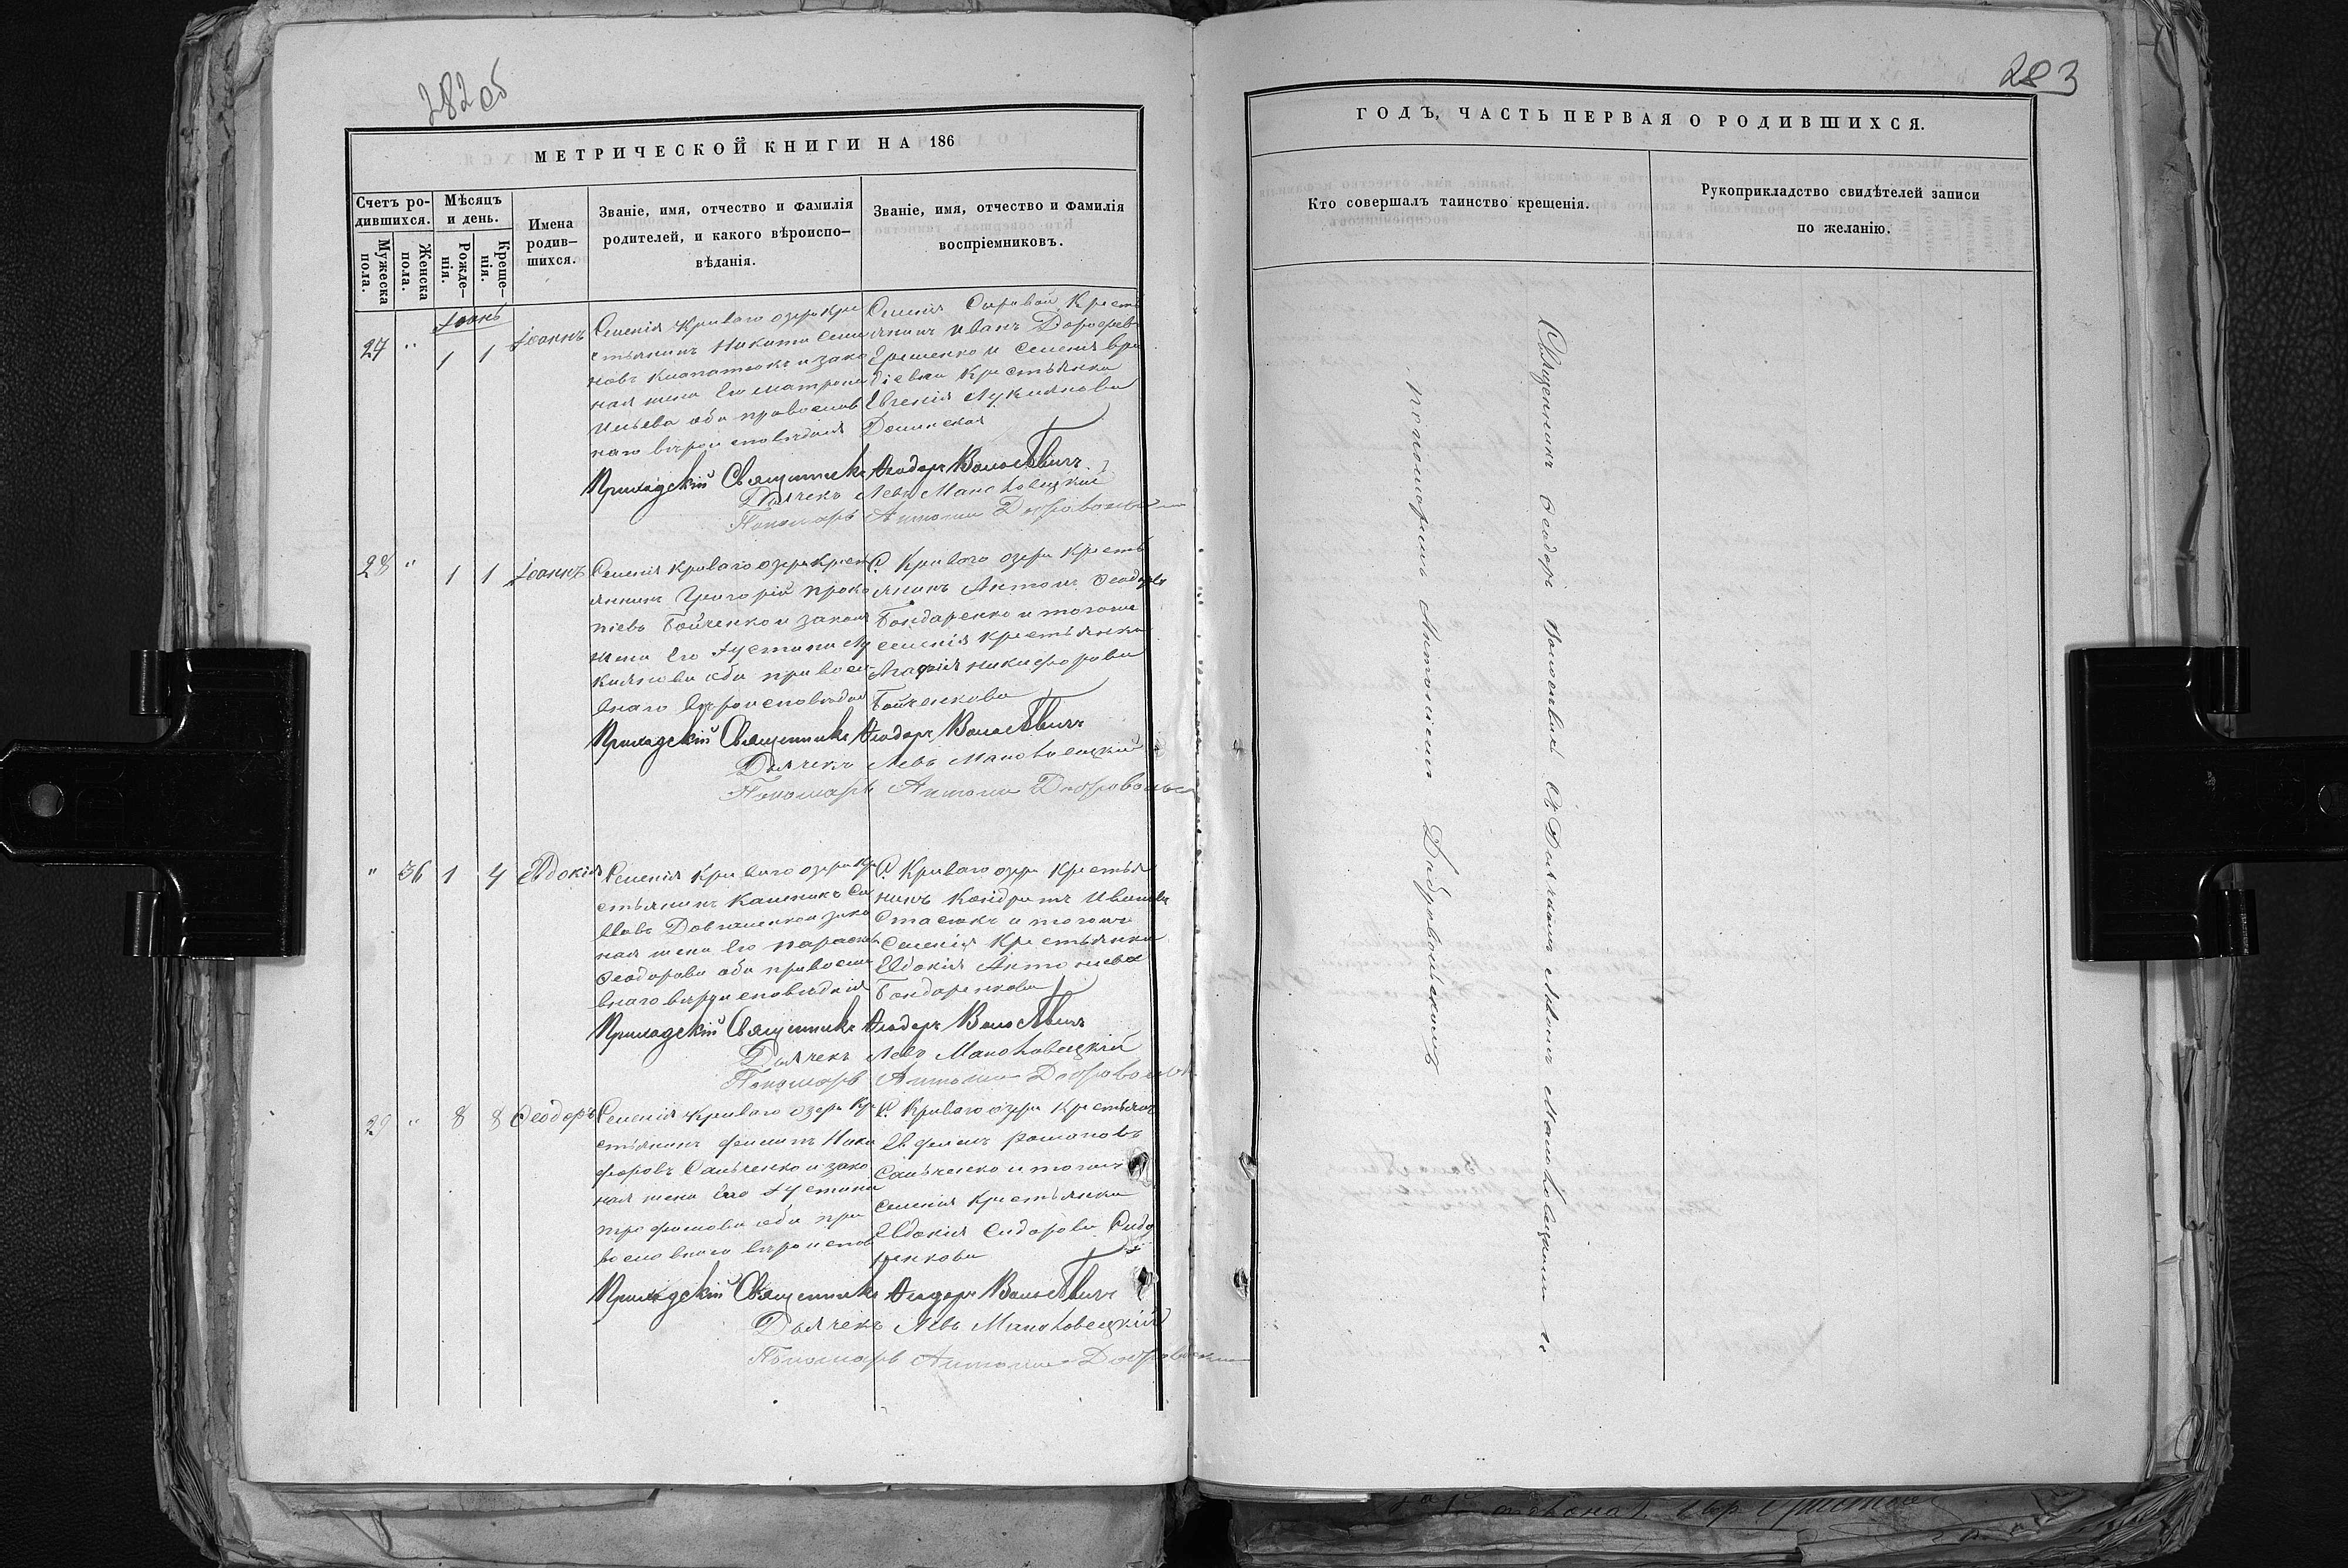 282 об
МЕТРИЧЕСКОЙ КНИГИ НА 186
Счетъ ро-
дившихся.
Мужеска
пола.
Женска
пола.
Мѣсяцъ
и день.
Рожде-
нія.
Креще-
нія.
Имена
родив-
шихся.
Званіе, имя, отчество и фамилія
родителей, и какого вѣроиспо-
вѣданія.
Званіе, имя, отчество и фамилія
воспріемниковъ.
27 " 1 1 Іоаннъ
Селенія Криваго озера Кре
стьянинъ Никита
и зако
ная жена его Матрона
Ильева оба православ
наго вѣроисповѣданія
Селенія Сыровой Кресть
янинъ Иванъ Дорофеев
Ерешенко и селенія Вра
діевки Крестьянка
Евгенія Лукиянова
Приходскій Священникъ Ѳеодоръ
Дьячекъ Левъ Маньковецкій
Пономарь Антоній Добровольскій
28 " 1 1 Іоаннъ
Селенія Криваго озера Крест
янинъ Григорій Проко
піевъ Бойченко и законая
жена его Іустина Лу
киянова оба правосла
внаго вѣроисповѣдан
С. Криваго озера Кресть
янинъ Антонъ Ѳеодоровъ
Бондаренко и тогоже
селенія Крестьянка
Агафія Никифорова
Бойченкова
Приходскій Священникъ Ѳеодоръ
Дьячекъ Левъ Маньковецкій
Пономарь Антоній Добровольс
" 36 1 4 Евдокія
Селенія Криваго озера Кре
стьянинъ Калиникъ Са
и зако
ная жена его Параскев
Ѳеодорова оба правосла
внаго вѣроисповѣданія
С. Криваго озера Крестья
нинъ Кондратъ Ивановъ
Стасюкъ и тогожъ
Селенія Крестьянка
Евдокія Антонова
Бондаренкова
Приходскій Священникъ Ѳеодоръ
Дьячекъ Левъ Маньковецкій
Пономарь Антоній Добровольск
29 " 8 8 Ѳеодоръ
Селенія Криваго озера Кре
стьянинъ Филипъ Ники
форовъ Сальченко и зако
ная жена его Іустина
Трофимова оба пра
вославнаго вѣроиспов
С. Криваго озера Крестьян
Романовъ
Сальченко и тогожъ
селенія Крестьянка
Евдокія Сидорова Сидо
ренкова
Приходскій Священникъ Ѳеодоръ
Дьячекъ Левъ Маньковецкій
Пономарь Антоній Добровольскій
283
ГОДЪ, ЧАСТЬ ПЕРВАЯ О РОДИВШИХСЯ.
Кто совершалъ таинство крещенія.
Рукоприкладство свидѣтелей записи
по желанію.
Священникъ Ѳеодоръ съ Дьячкомъ Львомъ Маньковецкимъ и
пономаремъ Антоніемъ Добровольскимъ